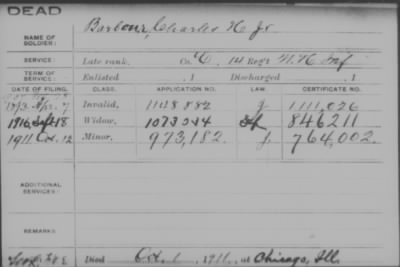 DEAD
NAME OF SOLDIER: Barbour, Charles H. Jr
SERVICE: Late rank, Co. G, 14 Reg't N.H. Inf
TERM OF SERVICE: Enlisted , 1 Discharged , 1
DATE OF FILING. CLASS. APPLICATION NO. LAW. CERTIFICATE NO.
7 Invalid, 1,111,026
1916 Sept 18 Widow, 1073 846211
1911 Oct. 12 Minor, 973,182. 764,002.
ADDITIONAL SERVICES:
REMARKS:
Died Oct. 1, 1911, at Chicago, Ill.